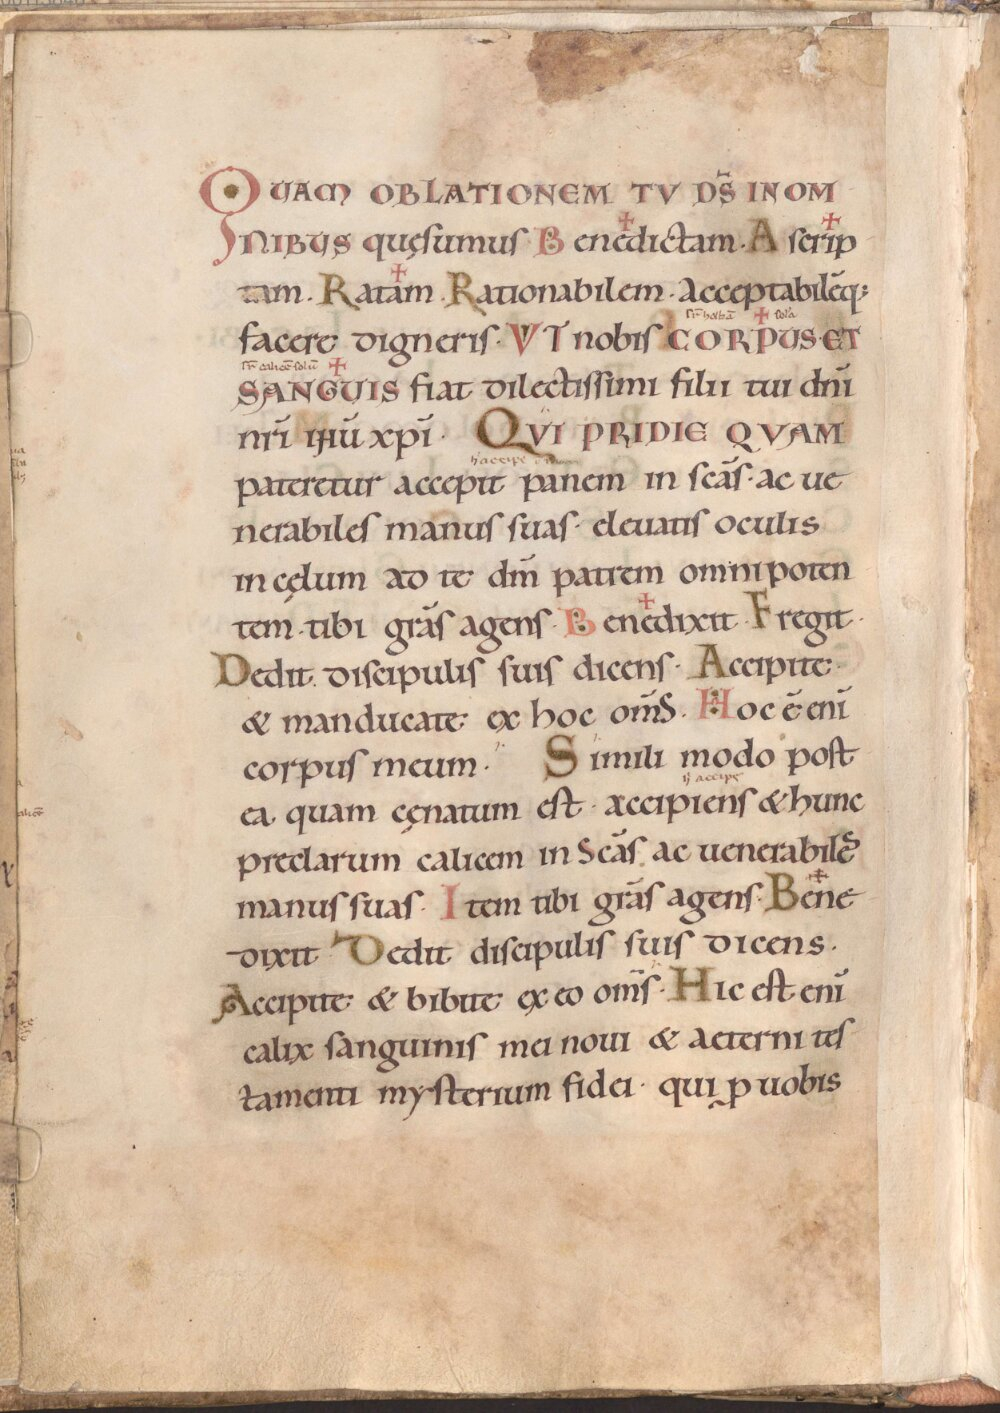 QUAM OBLATIONEM TV DS̄ IN OM
NIBUS quęsumus Bene✝dictam. Ascri✝p
tam. Rata✝m. Rationabilem. acceptabilēq;
facere digneris. VT nobis CORP✝US ET
SANG✝UIS fiat dilectissimi filii tui dn̄i
nr̄i ihū xp̄i. QVI PRIDIE QVAM
pateretur accepit panem in scās. ac ue
nerabiles manus suas. eleuatis oculis
in cęlum ad te dm̄ patrem omnipoten
tem. tibi grās agens. Bene✝dixit. Fregit.
Dedit. discipulis suis dicens. Accipite.
& manducate ex hoc om̄s. Hoc ē eni̅
corpus meum. Simili modo post
ea quam cęnatum est. accipiens & hunc
preclarum calicem in Scās ac uenerabiles
manus suas. Item tibi grās agens. Be✝ne
dixit Dedit discipulis suis dicens.
Accipite & bibite ex eo om̄s. Hic est eni̅
calix sanguinis mei noui & aeterni tes
tamenti mysterium fidei. qui p̱ uobis